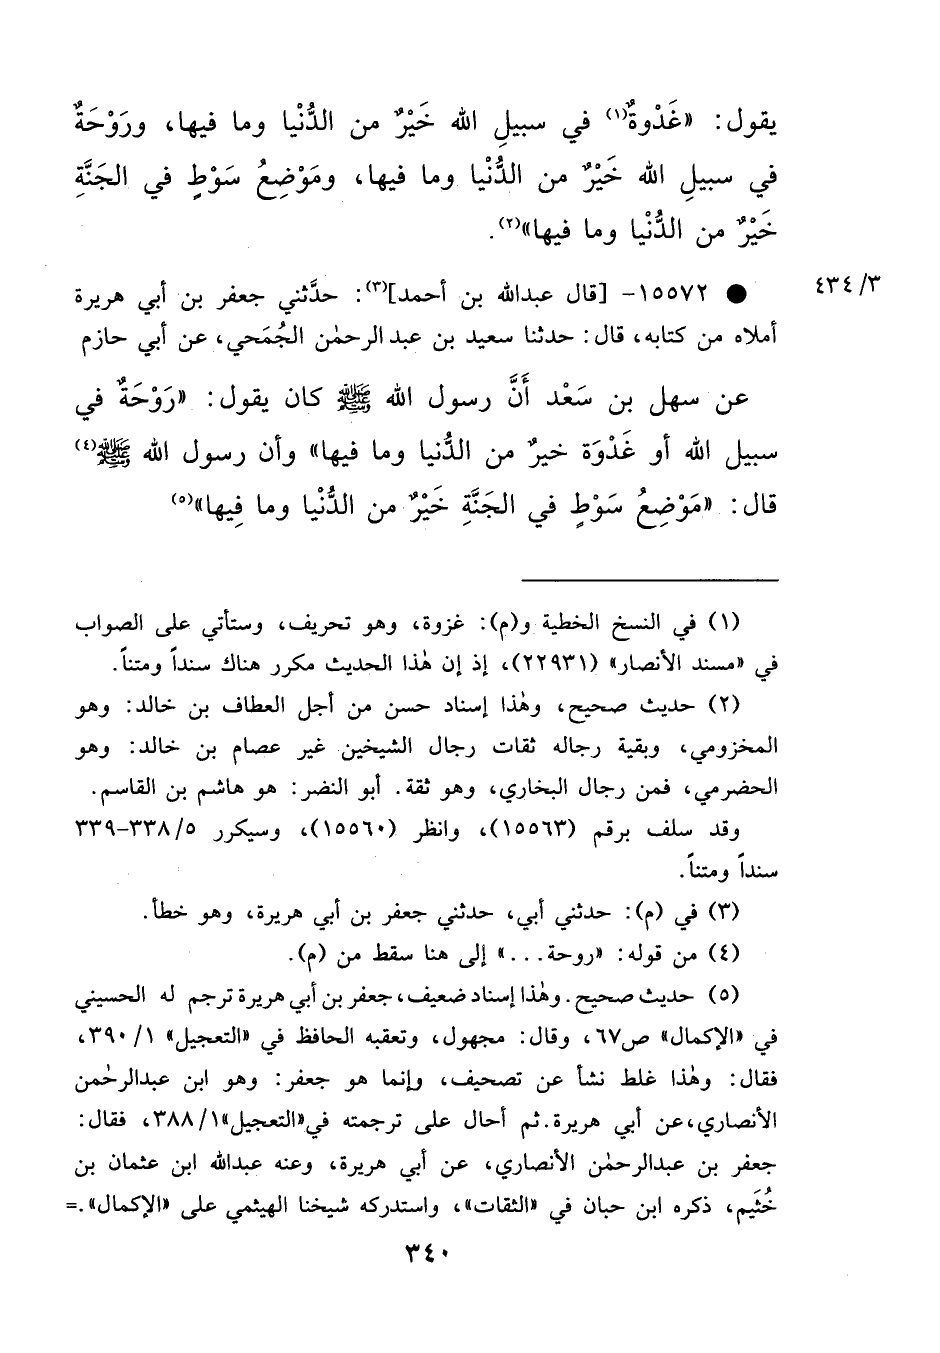 يقول: «غَدْوةٌ(١) في سبيلِ الله خَيْرٌ من الدُّنْيا وما فيها، ورَوْحَةٌ
في سبيلِ الله خَيْرٌ من الدُّنْيا وما فيها، ومَوْضِعُ سَوْطٍ في الجَنَّةِ
خَيْرٌ من الدُّنْيا وما فيها»(٢).
٤٣٤/٣
● ١٥٥٧٢- [قال عبدالله بن أحمد](٣): حدَّثني جعفر بن أبي هريرة
أملاه من كتابه، قال: حدثنا سعيد بن عبد الرحمٰن الجُمَحي، عن أبي حازم
عن سهل بن سَعْد أَنَّ رسول الله ﷺ كان يقول: «رَوْحَةٌ في
سبيل الله أو غَدْوَة خيرٌ من الدُّنيا وما فيها» وأن رسول الله ﷺ(٤)
قال: «مَوْضِعُ سَوْطٍ في الجَنَّةِ خَيْرٌ من الدُّنْيا وما فِيها»(٥)
(١) في النسخ الخطية و(م): غزوة، وهو تحريف، وستأتي على الصواب
في «مسند الأنصار» (٢٢٩٣١)، إذ إن هٰذا الحديث مكرر هناك سنداً ومتناً.
(٢) حديث صحيح، وهٰذا إسناد حسن من أجل العطاف بن خالد: وهو
المخزومي، وبقية رجاله ثقات رجال الشيخين غير عصام بن خالد: وهو
الحضرمي، فمن رجال البخاري، وهو ثقة. أبو النضر: هو هاشم بن القاسم.
وقد سلف برقم (١٥٥٦٣)، وانظر (١٥٥٦٠)، وسيكرر ٣٣٨/٥-٣٣٩
سنداً ومتناً.
(٣) في (م): حدثني أبي، حدثني جعفر بن أبي هريرة، وهو خطأ.
(٤) من قوله: «روحة...» إلى هنا سقط من (م).
(٥) حديث صحيح. وهٰذا إسناد ضعيف، جعفر بن أبي هريرة ترجم له الحسيني
في «الإكمال» ص٦٧، وقال: مجهول، وتعقبه الحافظ في «التعجيل» ٣٩٠/١،
فقال: وهٰذا غلط نشأ عن تصحيف، وإنما هو جعفر: وهو ابن عبدالرحٰمن
الأنصاري، عن أبي هريرة. ثم أحال على ترجمته في«التعجيل»٣٨٨/١، فقال:
جعفر بن عبدالرحمٰن الأنصاري، عن أبي هريرة، وعنه عبدالله ابن عثمان بن
خُثَيم، ذكره ابن حبان في «الثقات»، واستدركه شيخنا الهيثمي على «الإكمال».=
٣٤٠